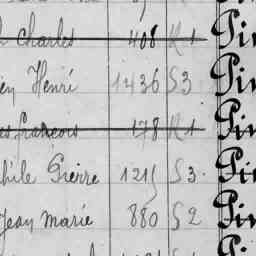 Charles 408 R 1 Pin
Henri 1436 S3 Pin
françois 178 R1 Pin
Pierre 1215 S3. Pin
Jean Marie 880 S2 Pin